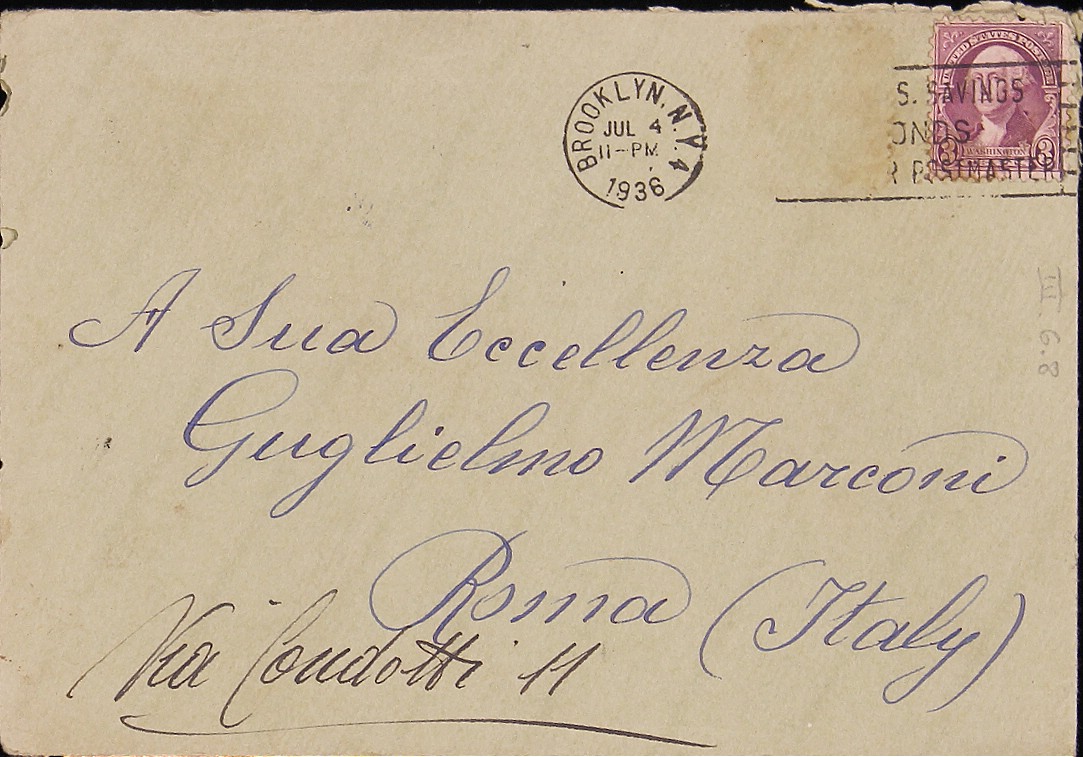 BROOKLYN, N.Y. 4
JUL 4
11-PM
1936
UNITED STATES POSTAGE
3 WASHINGTON 3
S. SAVINGS
ONDS
R POSTMASTER
A Sua Eccellenza
Guglielmo Marconi
Roma (Italy)
Via Condotti 11
8.9 III